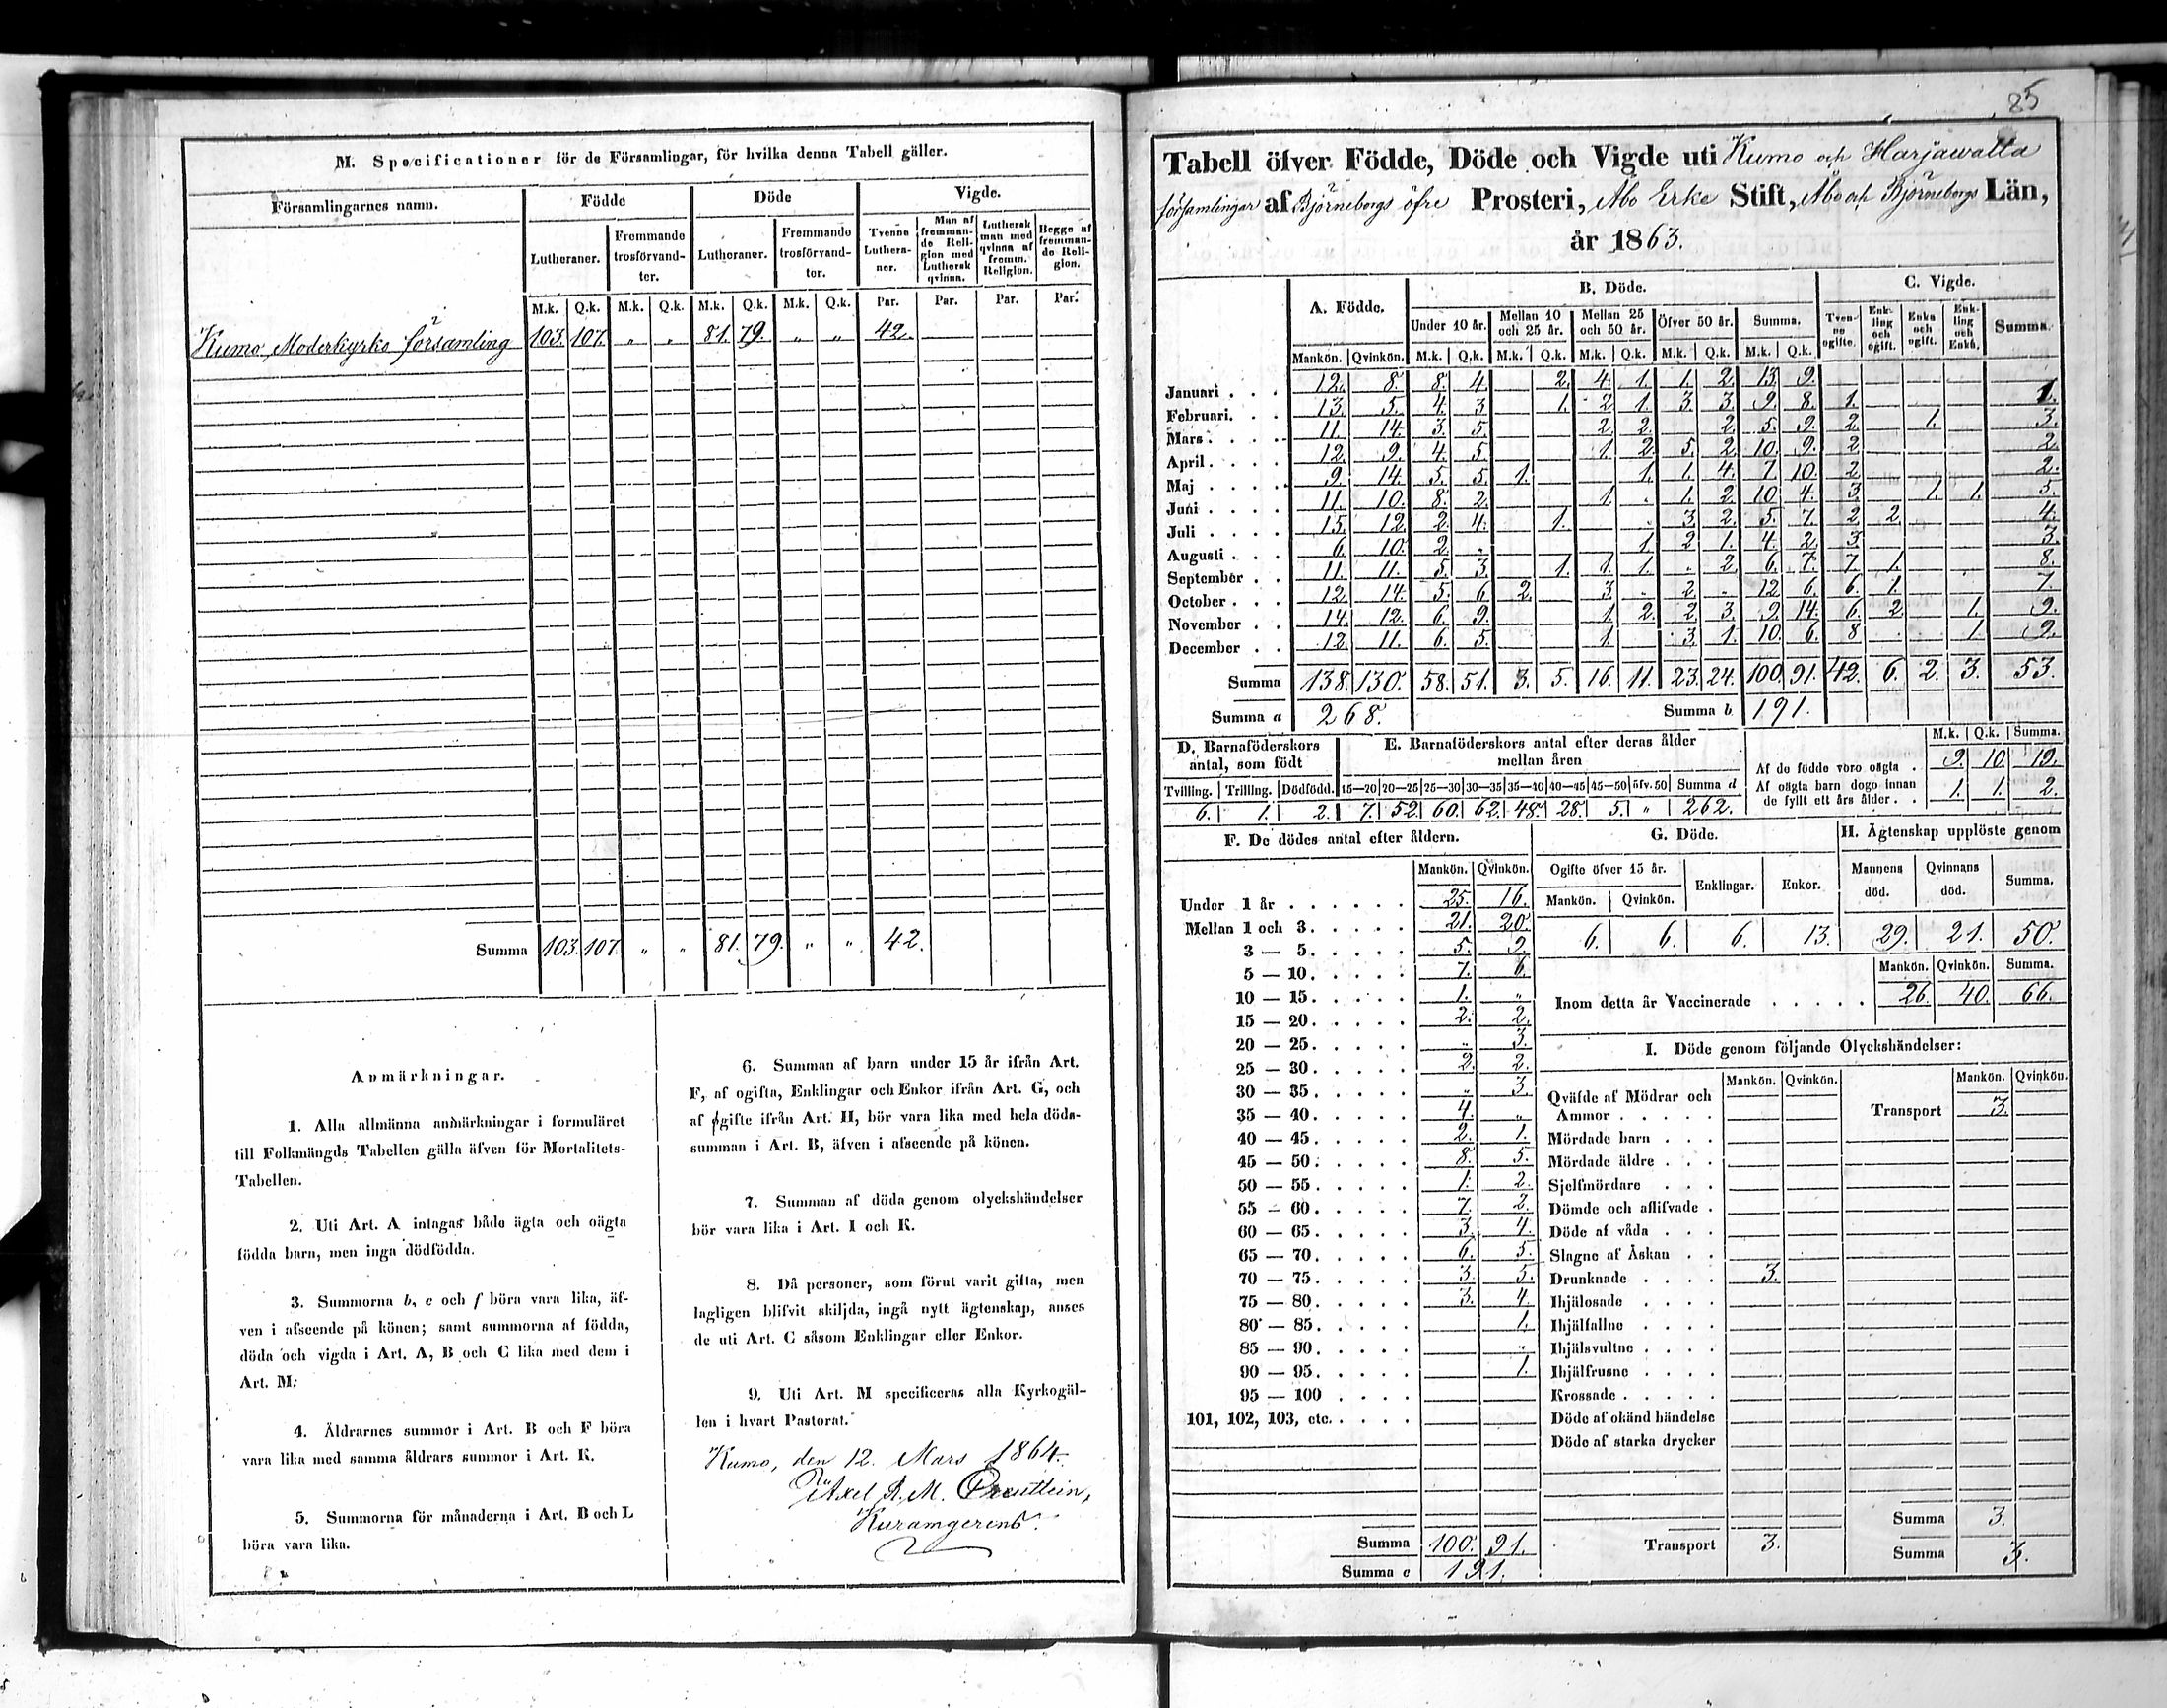 M. Specificationer för de Församlingar, för hvilka denna Tabell gäller.
Församlingarnes namn. Födde Döde Vigde.
Lutheraner. Fremmande trosförvandter. Lutheraner. Fremmande trosförvandter. Tvenne Lutheraner. Man af fremmande Religion med Luthersk qvinna. Luthersk man med qvinna af fremm. Religion. Begge af fremmande Religion.
M.k. Q.k. M.k. Q.k. M.k. Q.k. M.k. Q.k. Par. Par. Par. Par.
Kumo Moderkyrko församling 103. 107. " " 81. 79. " " 42.
Summa 103. 107. " " 81. 79. " " 42.
Anmärkningar.
1. Alla allmänna anmärkningar i formuläret
till Folkmängds Tabellen gälla äfven för Mortalitets-
Tabellen.
2. Uti Art. A intagas både ägta och oägta
födda barn, men inga dödfödda.
3. Summorna b, e och f böra vara lika, äf-
ven i afseende på könen; samt summorna af födda,
döda och vigda i Art. A, B och C lika med dem i
Art. M.
4. Åldrarnes summor i Art. B och F böra
vara lika med samma åldrars summor i Art. K.
5. Summorna för månaderna i Art. B och L
böra vara lika.
6. Summan af barn under 15 år ifrån Art.
F, af ogifta, Enklingar och Enkor ifrån Art. G, och
af gifte ifrån Art. H, bör vara lika med hela döds-
summan i Art. B, äfven i afseende på könen.
7. Summan af döda genom olyckshändelser
bör vara lika i Art. I och K.
8. Då personer, som förut varit gifta, men
lagligen blifvit skiljda, ingå nytt ägtenskap, anses
de uti Art. C såsom Enklingar eller Enkor.
9. Uti Art. M specificeras alla Kyrkogäl-
len i hvart Pastorat.
Kumo, den 12. Mars 1864.
Axel R. M.
85
Tabell öfver Födde, Döde och Vigde uti Kumo och Harjawalta
församlingar af Björneborgs öfre Prosteri, Åbo Erke Stift, Åbo och Björneborgs Län,
år 1863.
A. Födde. B. Döde. C. Vigde.
Under 10 år. Mellan 10 och 25 år. Mellan 25 och 50 år. Öfver 50 år. Summa. Tvenne ogifte. Enkling och ogift. Enka och ogift. Enkling och Enka. Summa.
Mankön. Qvinkön. M.k. Q.k. M.k. Q.k. M.k. Q.k. M.k. Q.k. M.k. Q.k.
Januari 12. 8. 8. 4. 2. 4. 1. 1. 2. 13. 9.
Februari 13. 5. 4. 3 1. 2 1. 3. 3. 9. 8. 1. 1.
Mars 11. 14. 3. 5. 2. 2. 2. 5. 9. 2. 1. 3.
April 12. 9. 4. 5. 1. 2. 5. 2. 10. 9. 2 2.
Maj 9. 14. 5. 5. 1. 1. 1. 4. 7. 10. 2 2.
Juni 11. 10. 8. 2. 1. 1. 2. 10 4. 3. 1. 1. 5.
Juli 15. 12. 2. 4. 1. 3 2. 5. 7. 2. 2. 4.
Augusti 6. 10. 2. 1. 2 1. 4. 2. 3 3.
September 11. 11. 5. 3. 1. 1. 1. 2. 6. 7. 7. 1. 8.
October 12. 14. 5. 6. 2. 3 2. 12. 6. 6. 1. 7.
November 14. 12. 6. 9. 1. 2. 2. 3. 9. 14. 6. 2. 1. 9.
December 12. 11. 6. 5. 1. 3. 1. 10. 6. 8 1. 9.
Summa 138. 130. 58. 51. 3. 5. 16. 11. 23. 24. 100. 91. 42. 6. 2. 3. 53.
Summa a 268. Summa b 191.
D. Barnaföderskors antal, som födt
Tvilling. Trilling. Dödfödd.
6. 1. 2.
E. Barnaföderskors antal efter deras ålder mellan åren
15—20 20—25 25—30 30—35 35—40 40—45 45—50 öfv. 50 Summa d
7. 52. 60. 62. 48. 28. 5. " 262.
M.k. Q.k. Summa.
Af de födde voro oägta 9. 10. 19.
Af oägta barn dogo innan de fyllt ett års ålder 1. 1. 2.
F. De dödes antal efter åldern.
Mankön. Qvinkön.
Under 1 år 25. 16.
Mellan 1 och 3 21. 20.
3 — 5 5. 9.
5 — 10 7. 6.
10 — 15 1. "
15 — 20 2. 2.
20 — 25 " 3.
25 — 30 2. 2.
30 — 35 " 3.
35 — 40 4. "
40 — 45 2. 1.
45 — 50 8. 5.
50 — 55 1. 2.
55 — 60 7. 2.
60 — 65 3. 4.
65 — 70 6. 5.
70 — 75 3. 5.
75 — 80 3. 4.
80 — 85 1.
85 — 90 "
90 — 95 1.
95 — 100
101, 102, 103, etc.
Summa 100. 91.
Summa e 191.
G. Döde.
Ogifte öfver 15 år. Enklingar. Enkor.
Mankön. Qvinkön.
6. 6. 6. 13.
H. Ägtenskap upplöste genom
Mannens död. Qvinnans död. Summa.
29. 21. 50.
Mankön. Qvinkön. Summa.
Inom detta år Vaccinerade 26. 40. 66.
I. Döde genom följande Olyckshändelser:
Mankön. Qvinkön. Mankön. Qvinkön.
Qväfde af Mödrar och Ammor Transport 3.
Mördade barn
Mördade äldre
Sjelfmördare
Dömde och aflifvade
Döde af våda
Slagne af Åskan
Drunknade 3.
Ihjälosade
Ihjälfallne
Ihjälsvultne
Ihjälfrusne
Krossade
Döde af okänd händelse
Döde af starka drycker
Summa 3.
Transport 3. Summa 3.